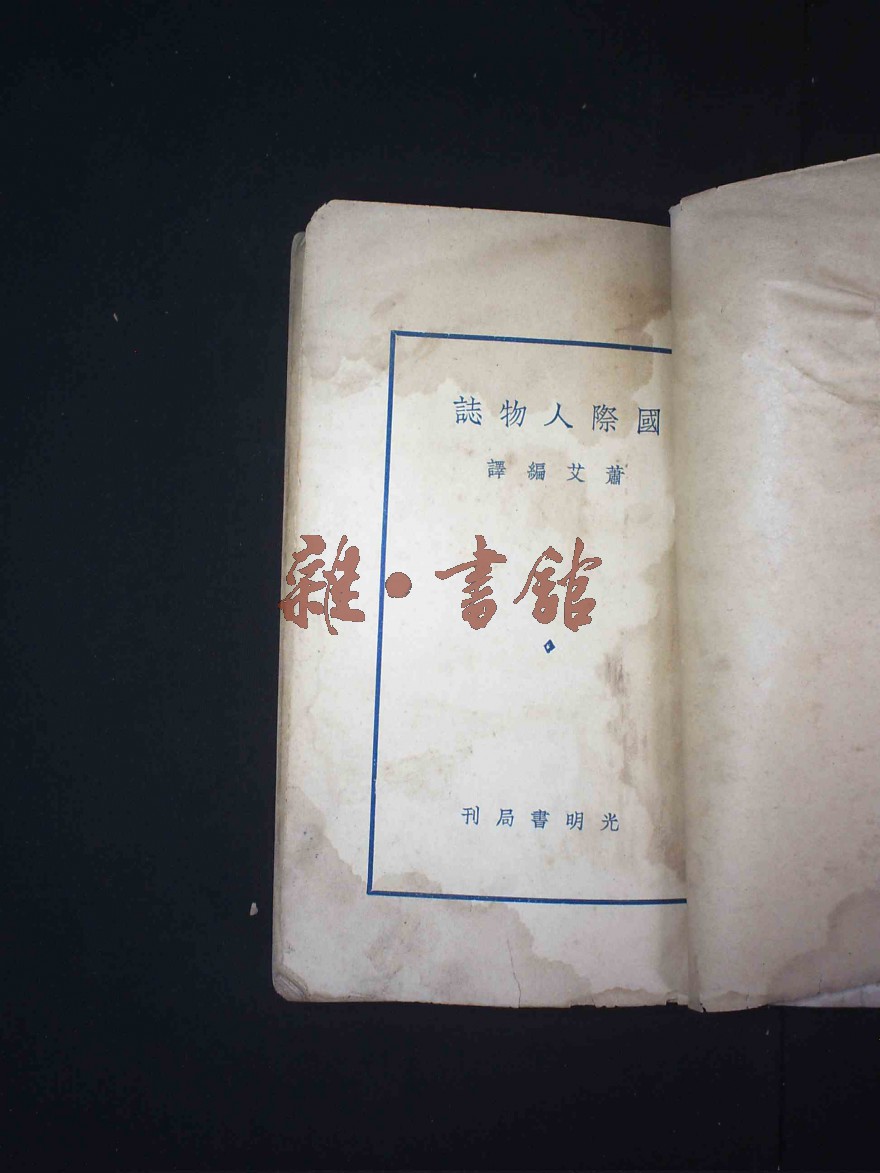 國際人物誌
蕭艾編譯
雜·書館
光明書局刊